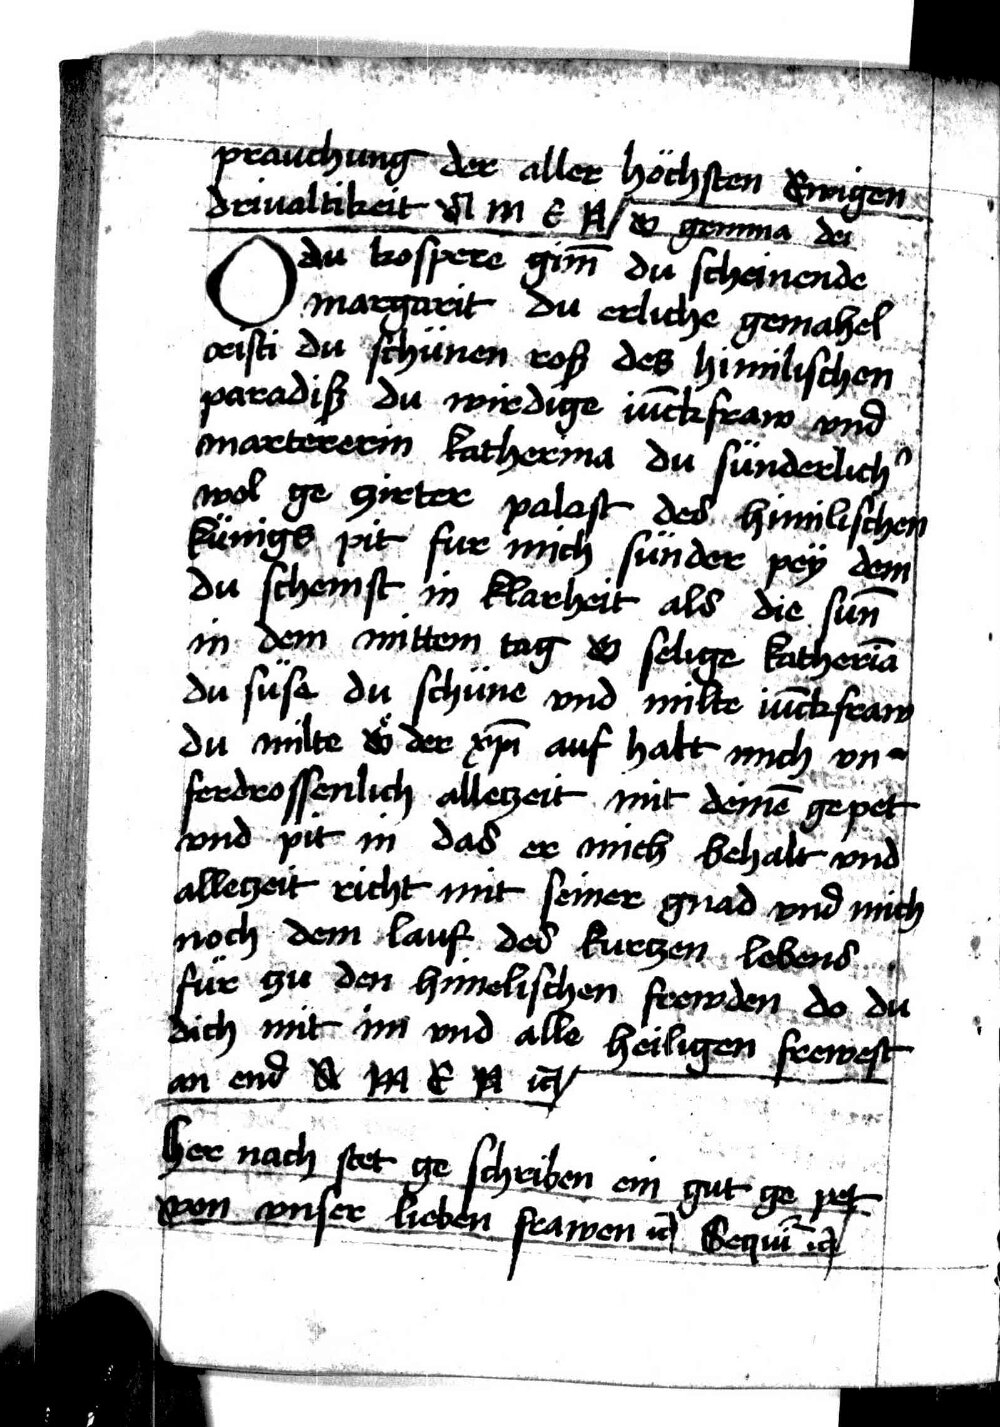 prauchung der aller höchsten Ewigen
drivaltikeit A M E N / O gemma dei
O du kospere gim̄ du scheinende
margarit du erliche gemahel
cristi du schünen roß des himilischen
paradiß du wirdige iūckfraw vnd
martererin katherina du sünderlich
wol ge zirter palast des himilischen
künigs pit fur mich sünder pey dem
du scheinst in klarheit als die sun̄
in dem mittem tag O selige katheria̅
du süse du schüne vnd milte iūckfraw
du milte der xp̄i auf halt mich vn-
ferdrossenlich alletzeit mit deinē gepet
vnd pit in das er mich behalt vnd
alletzeit richt mit seiner gnad vnd mich
noch dem lauf des kurtzen lebens
für zu den himelischen frewden do du
dich mit im vnd alle heiligen frewest
an end A M E N
Her nach stet ge schriben ein gut ge pet
von vnser lieben frawen